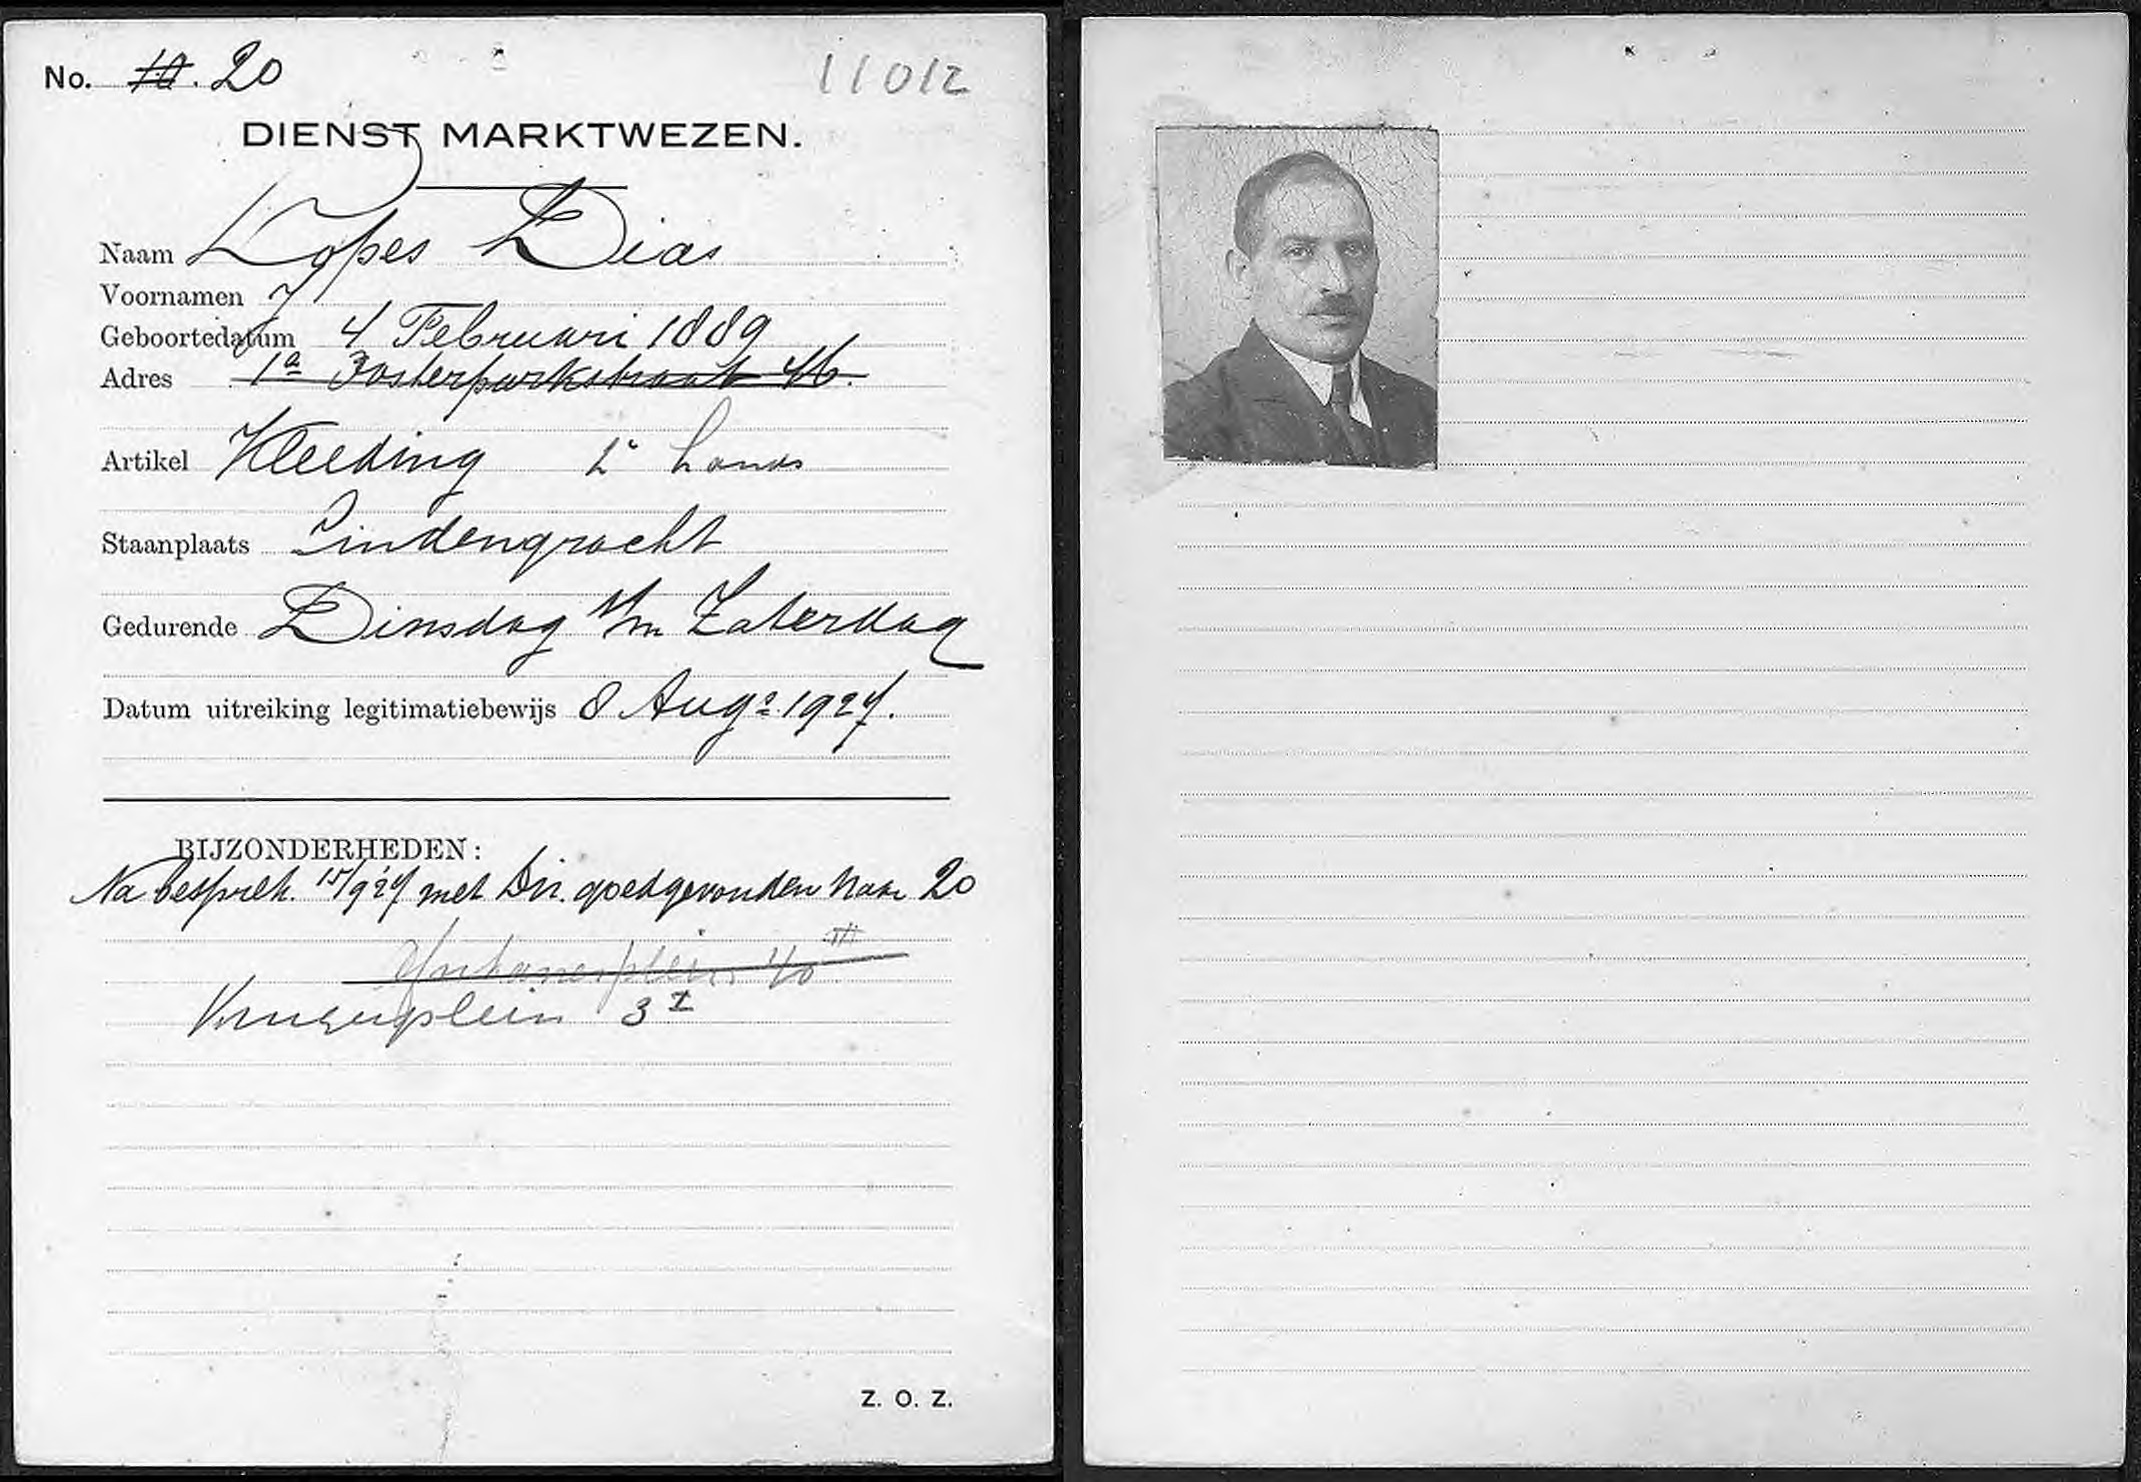 No. 10. 20
11012
DIENST MARKTWEZEN.
Naam Lopes Dias
Voornamen J
Geboortedatum 4 Februari 1889
Adres 1a Oosterparkstraat 46.
Artikel Kleeding 2e hands
Staanplaats Lindengracht
Gedurende Dinsdag t/m Zaterdag
Datum uitreiking legitimatiebewijs 8 Augs 1927.
BIJZONDERHEDEN:
Na besprek. 15/9 '27 met Dir. goedgevonden naar 20
40 III
Krugerplein 3 I
Z. O. Z.